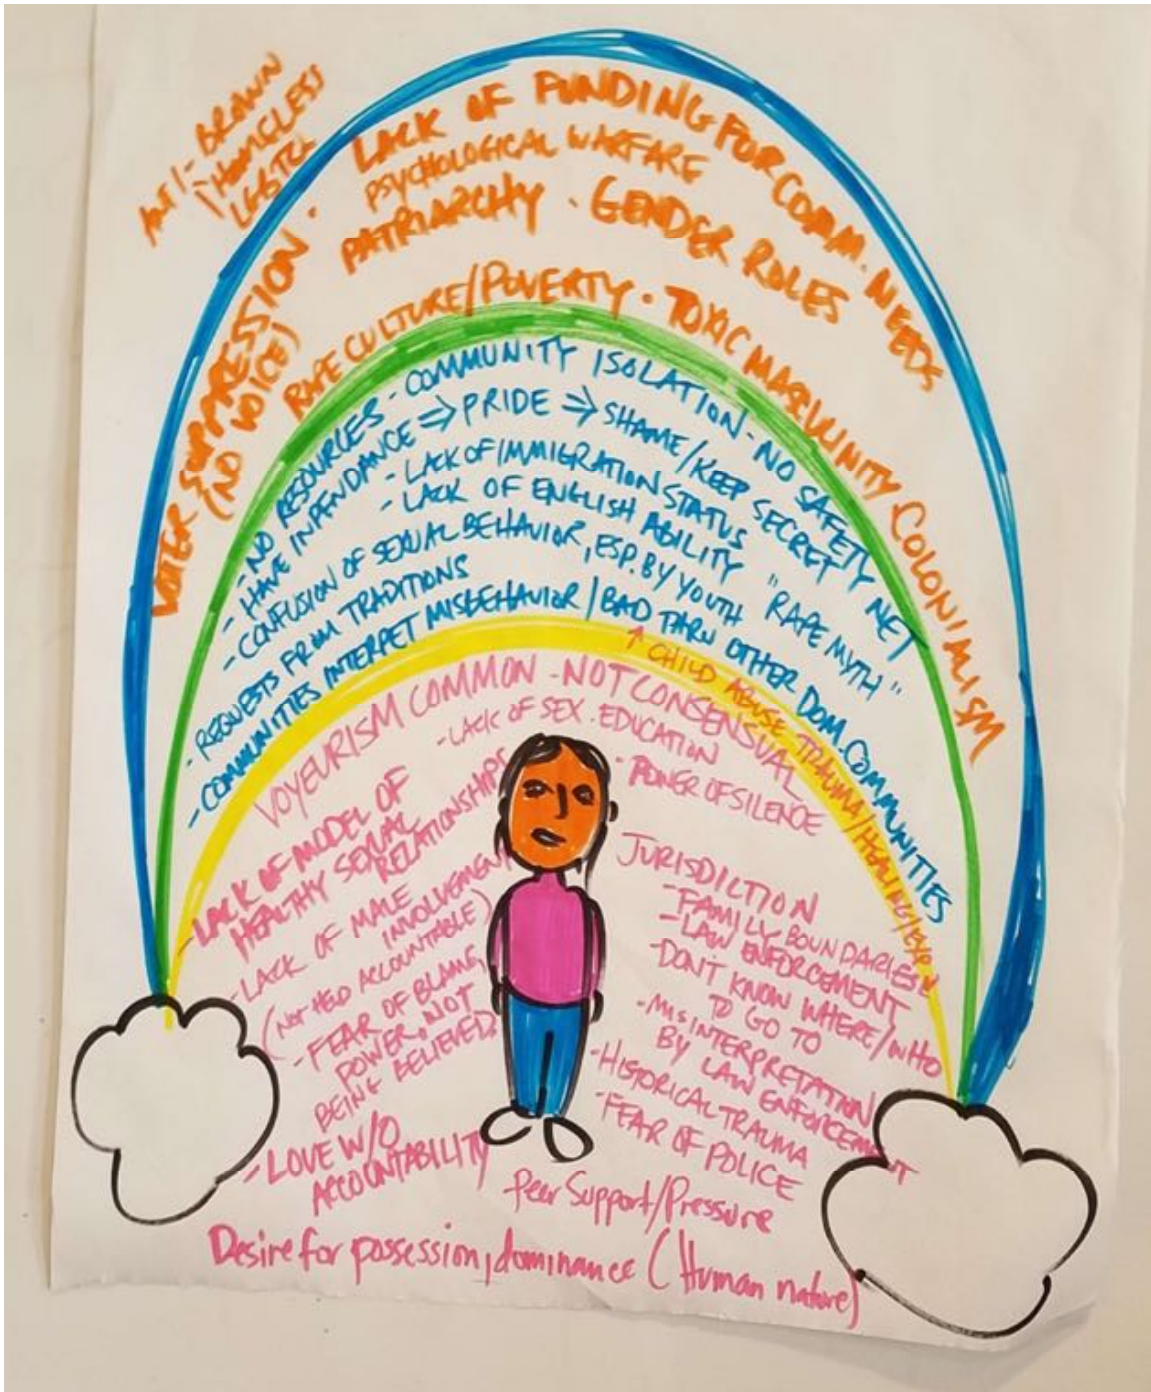 ANTI-BROWN
HOMELESS
LGBTQ
LACK OF FUNDING FOR COMM. NEEDS
PSYCHOLOGICAL WARFARE
PATRIARCHY . GENDER ROLES
VOTER SUPPRESSION .
(NO VOICE)
RAPE CULTURE/POVERTY . TOXIC MASCULINITY COLONIALISM
- NO RESOURCES - COMMUNITY ISOLATION - NO SAFETY NET
- HAVE INPENDANCE ⇒ PRIDE ⇒ SHAME/KEEP SECRET
- LACK OF IMMIGRATION STATUS
- LACK OF ENGLISH ABILITY
- CONFUSION OF SEXUAL BEHAVIOR, ESP. BY YOUTH "RAPE MYTH"
- REQUESTS FROM TRADITIONS
- COMMUNITIES INTERPRET MISBEHAVIOR / BAD THRU OTHER DOM. COMMUNITIES
↑ CHILD ABUSE TRAUMA/HEALING/EXP.
VOYEURISM COMMON - NOT CONSENSUAL
- LACK OF SEX. EDUCATION
- POWER OF SILENCE
- LACK OF MODEL OF
HEALTHY SEXUAL
RELATIONSHIPS
- LACK OF MALE
INVOLVEMENT
(NOT HELD ACCOUNTABLE)
- FEAR OF BLAME,
POWER, NOT
BEING BELIEVED
- LOVE W/O
ACCOUNTABILITY
JURISDICTION
- FAMILY BOUNDARIES
- LAW ENFORCEMENT
- DON'T KNOW WHERE/WHO
TO GO TO
- MISINTERPRETATION
BY LAW ENFORCEMENT
- HISTORICAL TRAUMA
- FEAR OF POLICE
Peer Support/Pressure
Desire for possession, dominance (Human nature)